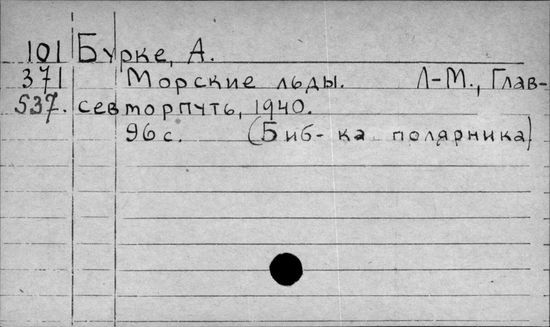 101 Бурке, А.
371 Морские льды. Л-М., Глав-
537. севморпуть, 1940.
96 с. (Биб-ка полярника)